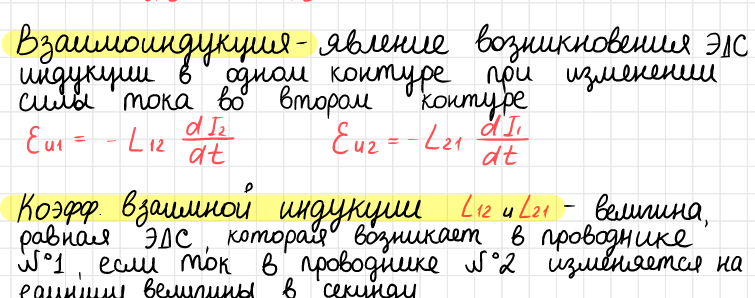 Взаимоиндукция - явление возникновения ЭДС
индукции в одном контуре при изменении
силы тока во втором контуре
Ɛu1 = - L12 dI2/dt    Ɛu2 = - L21 dI1/dt
Коэфф. взаимной индукции L12 и L21 - величина,
равная ЭДС, которая возникает в проводнике
№1, если ток в проводнике №2 изменяется на
величины в секунду